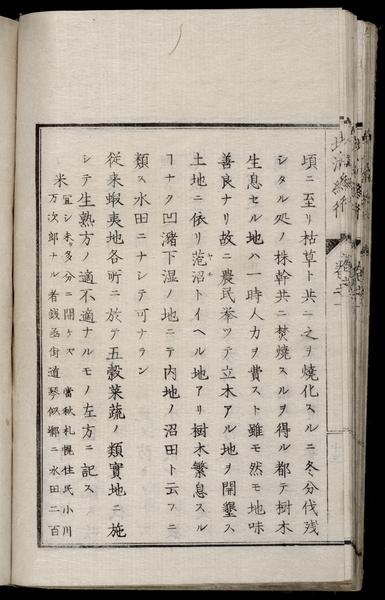 頃ニ至リ枯草ト共ニ之ヲ焼化スルニ冬分伐残
シタル処ノ株幹共ニ焚焼スルヲ得ル都テ樹木
生息セル地ハ一時人力ヲ費スト雖モ然モ地味
善良ナリ故ニ農民挙ツテ立木アル地ヲ開墾ス
土地ニ依リ萢沼トイヘル地アリ樹木繁息スル
ヿナク凹瀦下湿ノ地ニテ内地ノ沼田ト云フニ
類ス水田ニナシテ可ナラン
従来蝦夷地各所ニ於テ五穀菜蔬ノ類實地ニ施
シテ生熟方ノ適不適ナルモノ左方ニ記ス
米 宜シ未タ多分ニ開ケス 當秋札幌住民小川
万次郎ナル者銭函街道琴似郷ニ水田二百